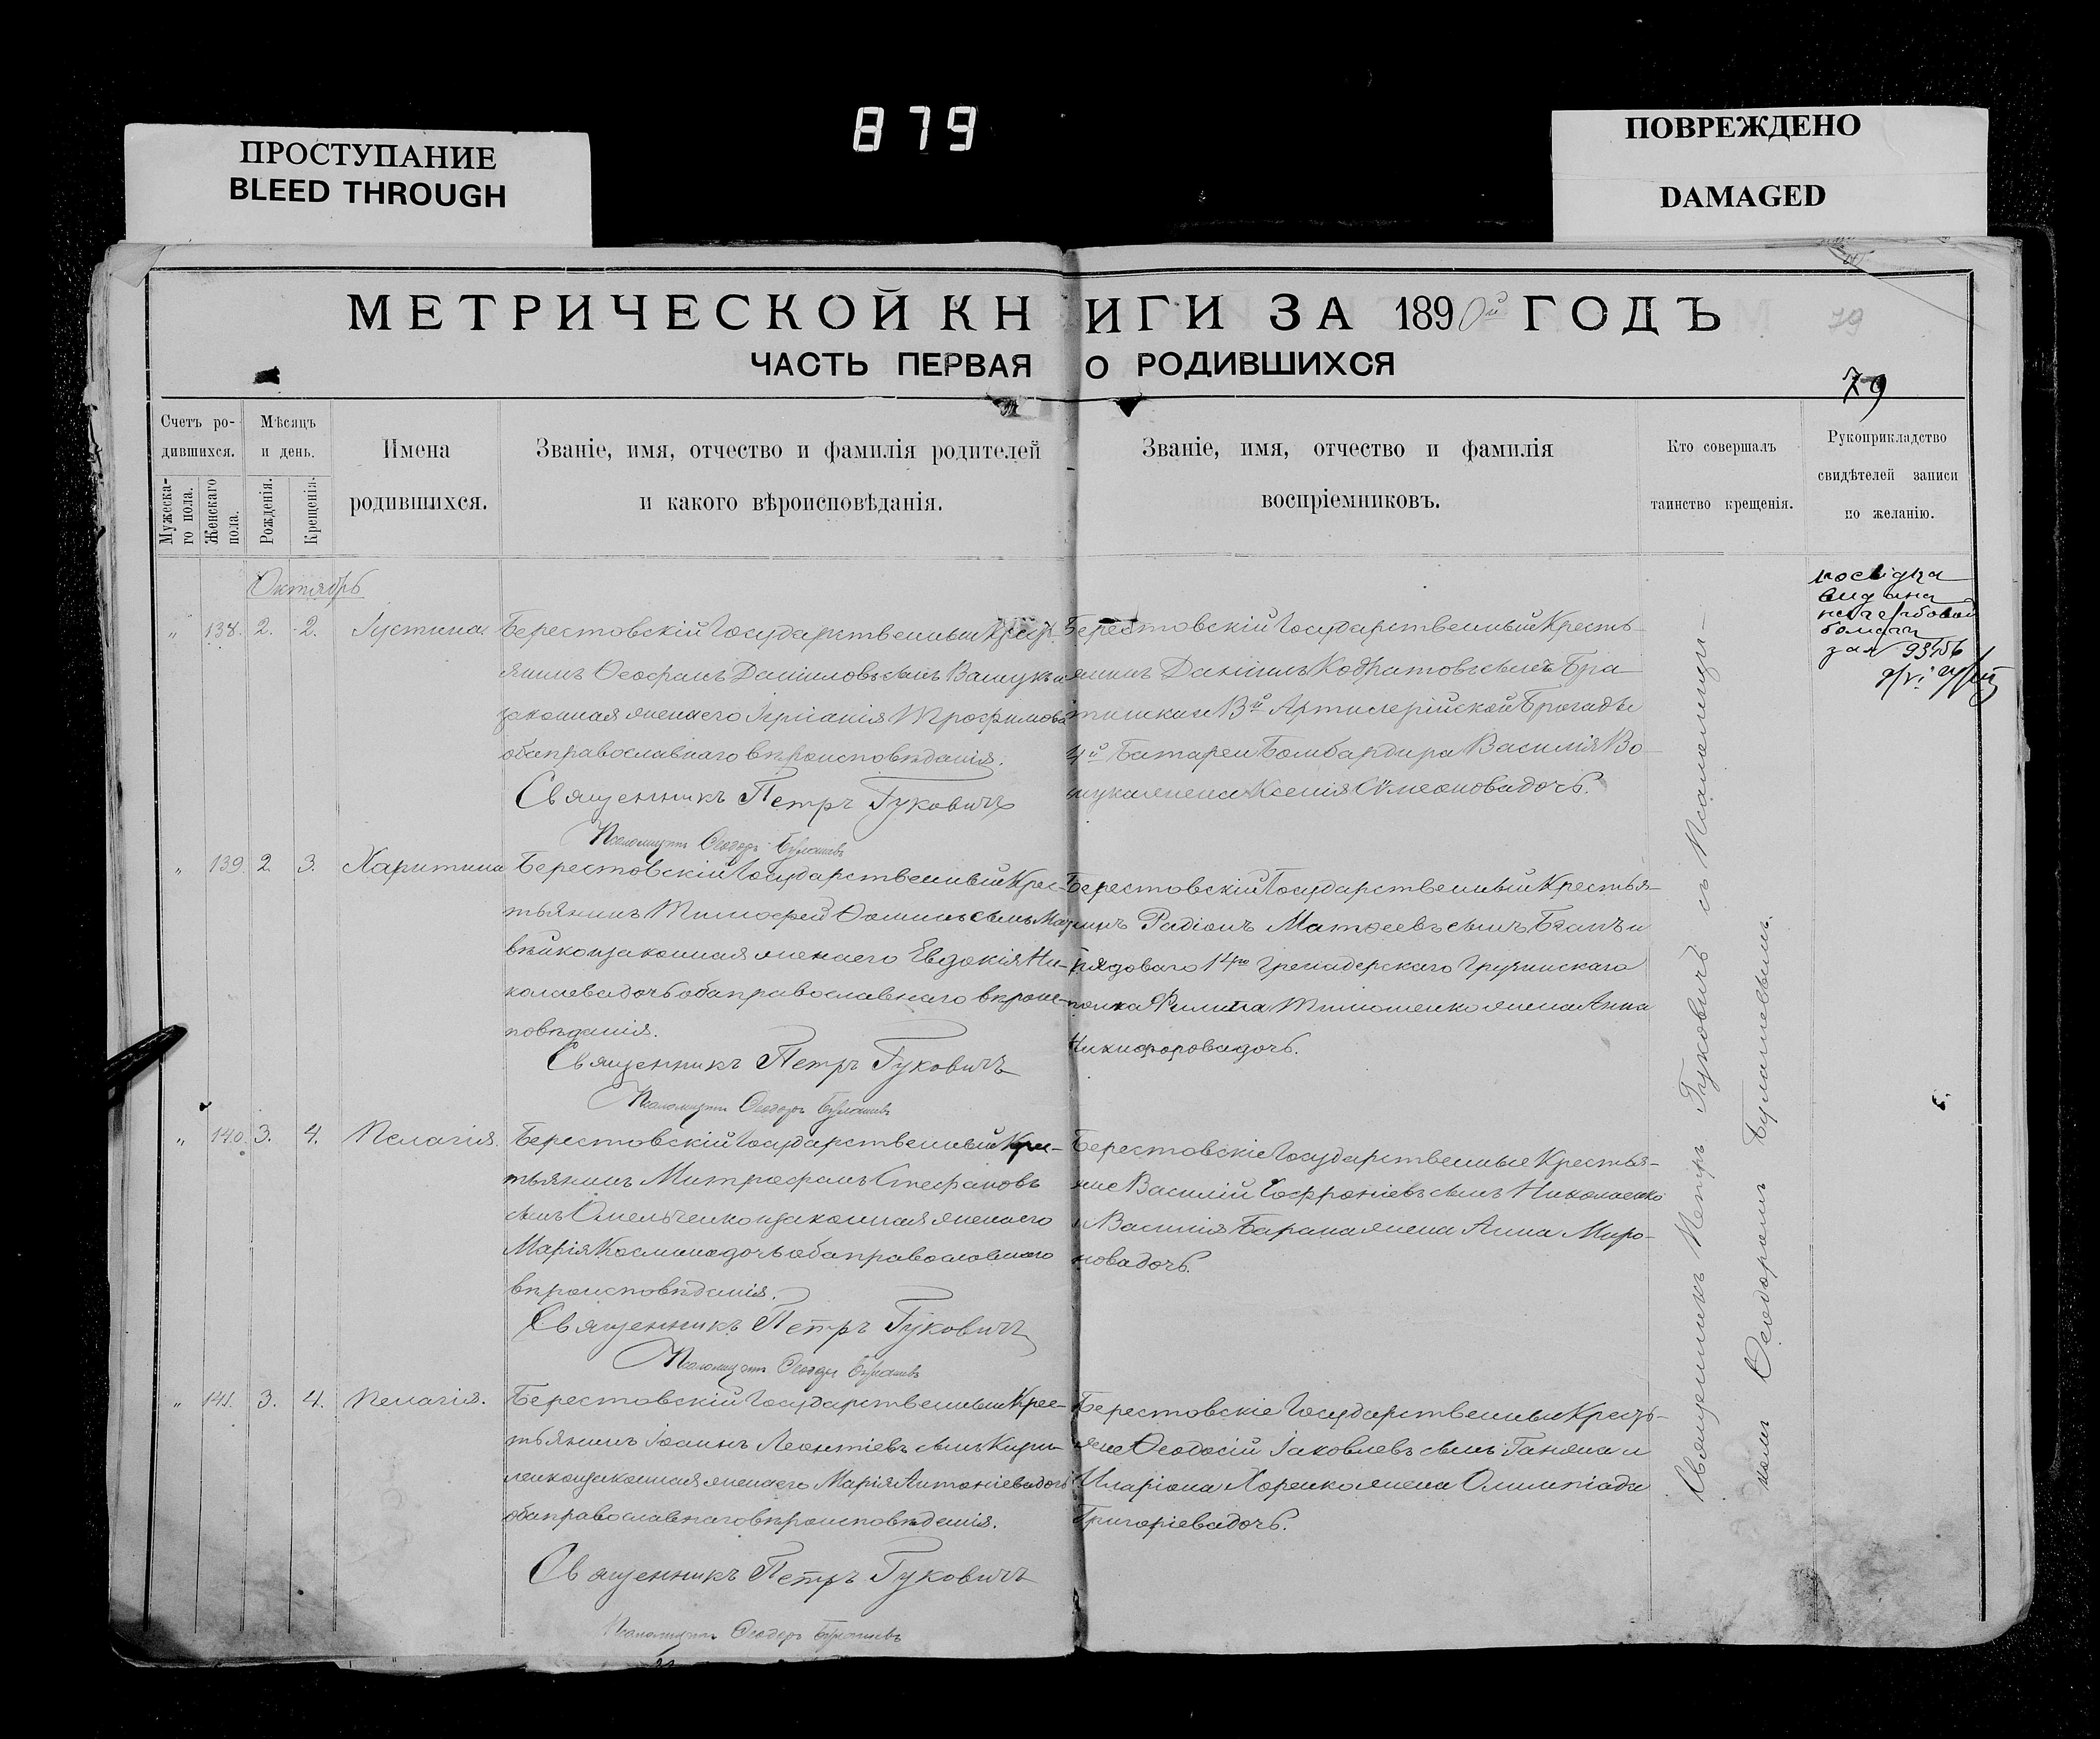 879
ПРОСТУПАНИЕ
BLEED THROUGH
ПОВРЕЖДЕНО
DAMAGED
МЕТРИЧЕСКОЙ КНИГИ ЗА 1890й ГОДЪ
ЧАСТЬ ПЕРВАЯ О РОДИВШИХСЯ
79
79
Счетъ ро-
дившихся.
Мужеска-
го пола.
Женскаго
пола.
Мѣсяцъ
и день.
Рожденія.
Крещенія.
Имена
родившихся.
Званіе, имя, отчество и фамилія родителей
и какого вѣроисповѣданія.
Званіе, имя, отчество и фамилія
воспріемниковъ.
Кто совершалъ
таинство крещенія.
Рукоприкладство
свидѣтелей записи
по желанію.
Октябрь
" 138. 2. 2. Іустина
Берестовскій Государственный Крест
янинъ Ѳеофанъ Даніиловъ сынъ и
законная жена его Трофимова
оба православнаго вѣроисповѣданія.
Священникъ Петръ Гуковичъ
Псаломщикъ Ѳеодоръ
Берестовскій Государственный Кресть-
янинъ Даніилъ Кодратовъ сынъ
Артилерійской Бригады
4й Батареи Бомбардира Василія Во-
жена Ксенія Сѵмеонова дочь.
" 139. 2. 3. Харитина
Берестовскій Государственный Крес-
тьянинъ Тимофей Ѳоминъ сынъ
законная жена его Евдокія Ни-
колаева дочь оба православнаго вѣроис-
повѣданія.
Священникъ Петръ Гуковичъ
Псаломщикъ Ѳеодоръ
Берестовскій Государственный Крестья-
нинъ Радіонъ Матѳеевъ сынъ и
рядоваго 14го Гренадерскаго Грузинскаго
полка Филипа Тимошенко жена Анна
Никифорова дочь.
" 140. 3. 4. Пелагія.
Берестовскій Государственный Крес-
тьянинъ Митрофанъ Стефановъ
сынъ Омельченко и законная жена его
Марія Космина дочь оба православнаго
вѣроисповѣданія.
Священникъ Петръ Гуковичъ
Псаломщикъ Ѳеодоръ
Берестовскіе Государственные Крестья-
не Василій Софроніевъ сынъ Николаенко
и Василія Барана жена Анна Миро-
нова дочь.
" 141. 3. 4. Пелагія.
Берестовскій Государственный Крес-
тьянинъ Іоаннъ Леонтіевъ сынъ Кири-
ленко и законная жена его Марія Антоніева дочь
оба православнаго вѣроисповѣданія.
Священникъ Петръ Гуковичъ
Псаломщикъ Ѳеодоръ
Берестовскіе Государственные Кресть-
яне Ѳеодосій Іаковлевъ сынъ и
Иларіона Хоренко жена Олимпіада
Григоріева дочь.
Священникъ Петръ Гуковичъ съ Псаломщи-
комъ Ѳеодоромъ